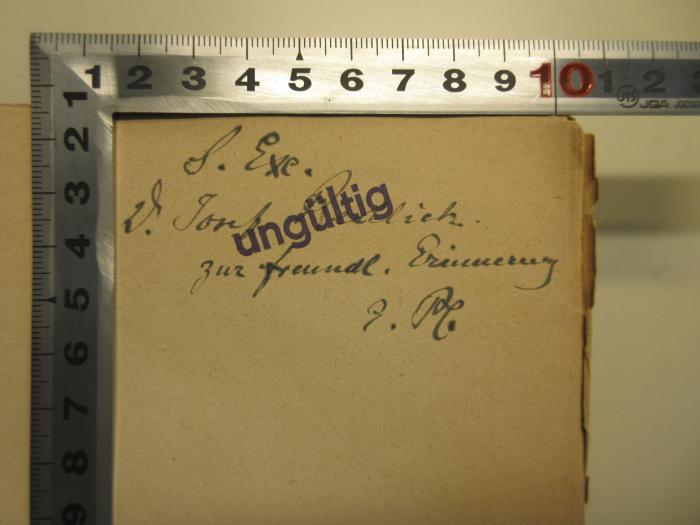 1 2 3 4 5 6 7 8 9 10 1 2
JIS JQA JQ030
1
2
3
4
5
6
7
8
9
S. Exc.
Dr. Josef Redlich.
ungültig
zur freundl. Erinnerung